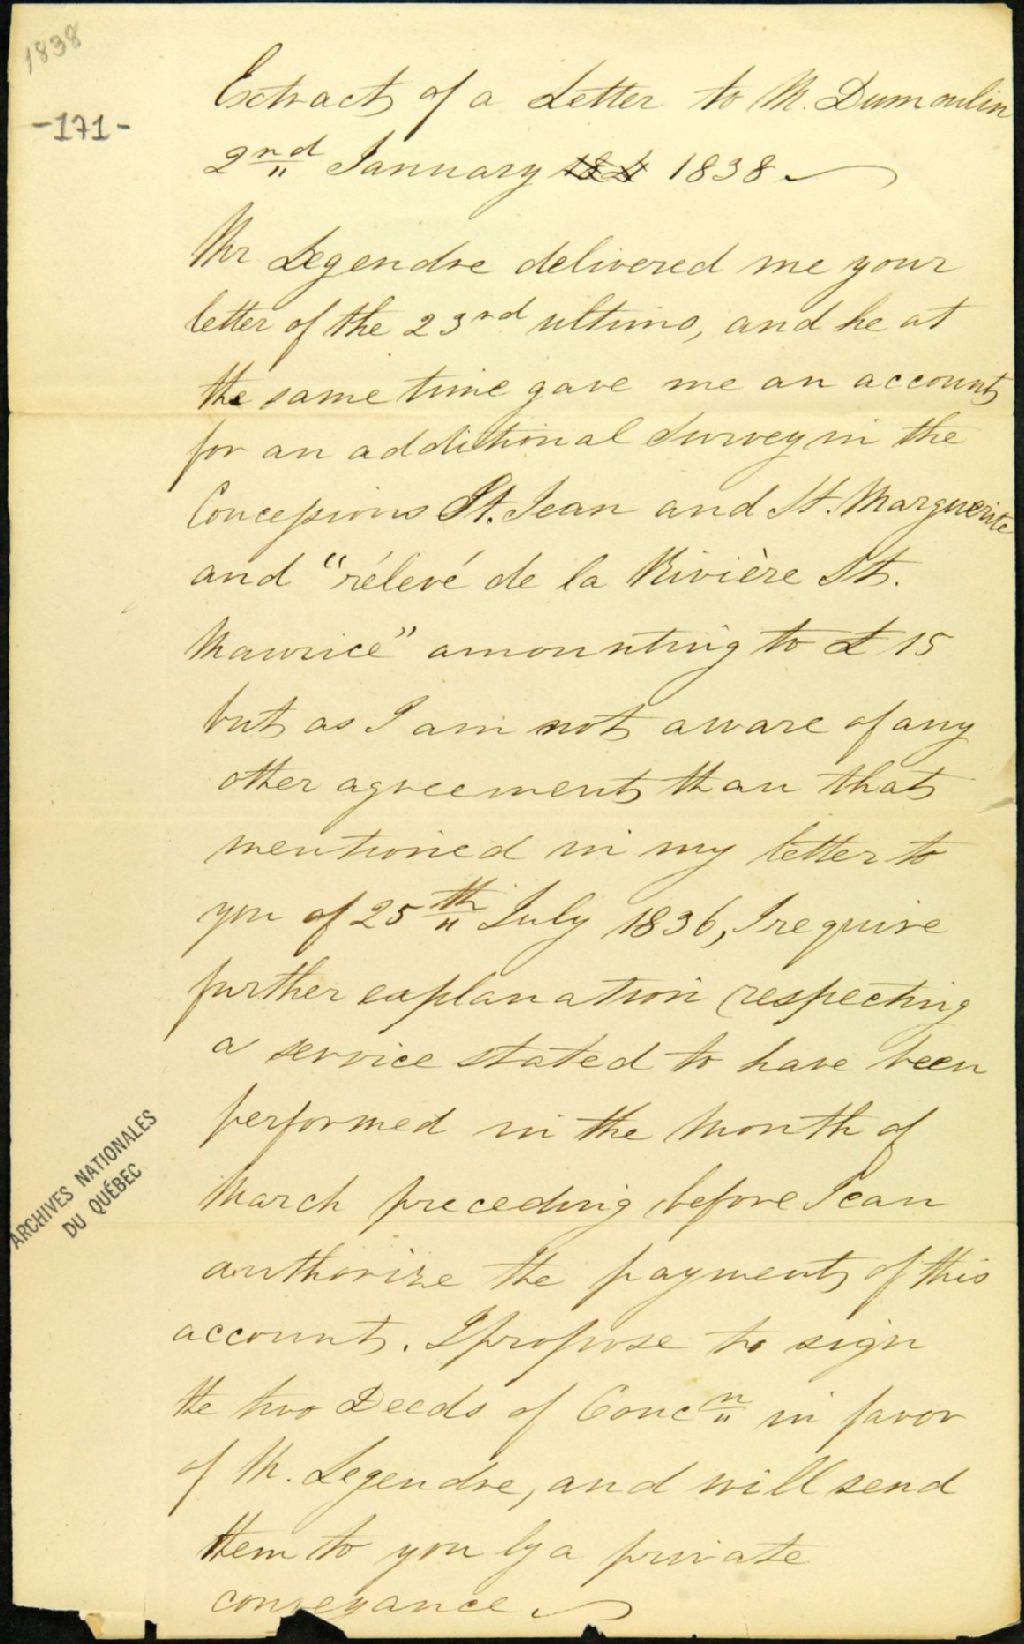 1838
-171-
Extract of a Letter to M. Dumoulin
2nd January 1838
Mr Legendre delivered me your
letter of the 23rd ultimo, and he at
the same time gave me an account
for an additional Survey in the
Concessions St. Jean and St. Marguerite
and "rélevé de la Rivière St.
Maurice" amounting to £15
but as I am not aware of any
other agreement than that
mentioned in my letter to
you of 25th July 1836, I require
further explanation respecting
a service stated to have been
performed in the Month of
March preceding before I can
authorize the payment of this
account. I propose to sign
the two Deeds of Concn in favor
of M. Legendre, and will send
them to you by a private
conveyance
ARCHIVES NATIONALES
DU QUÉBEC